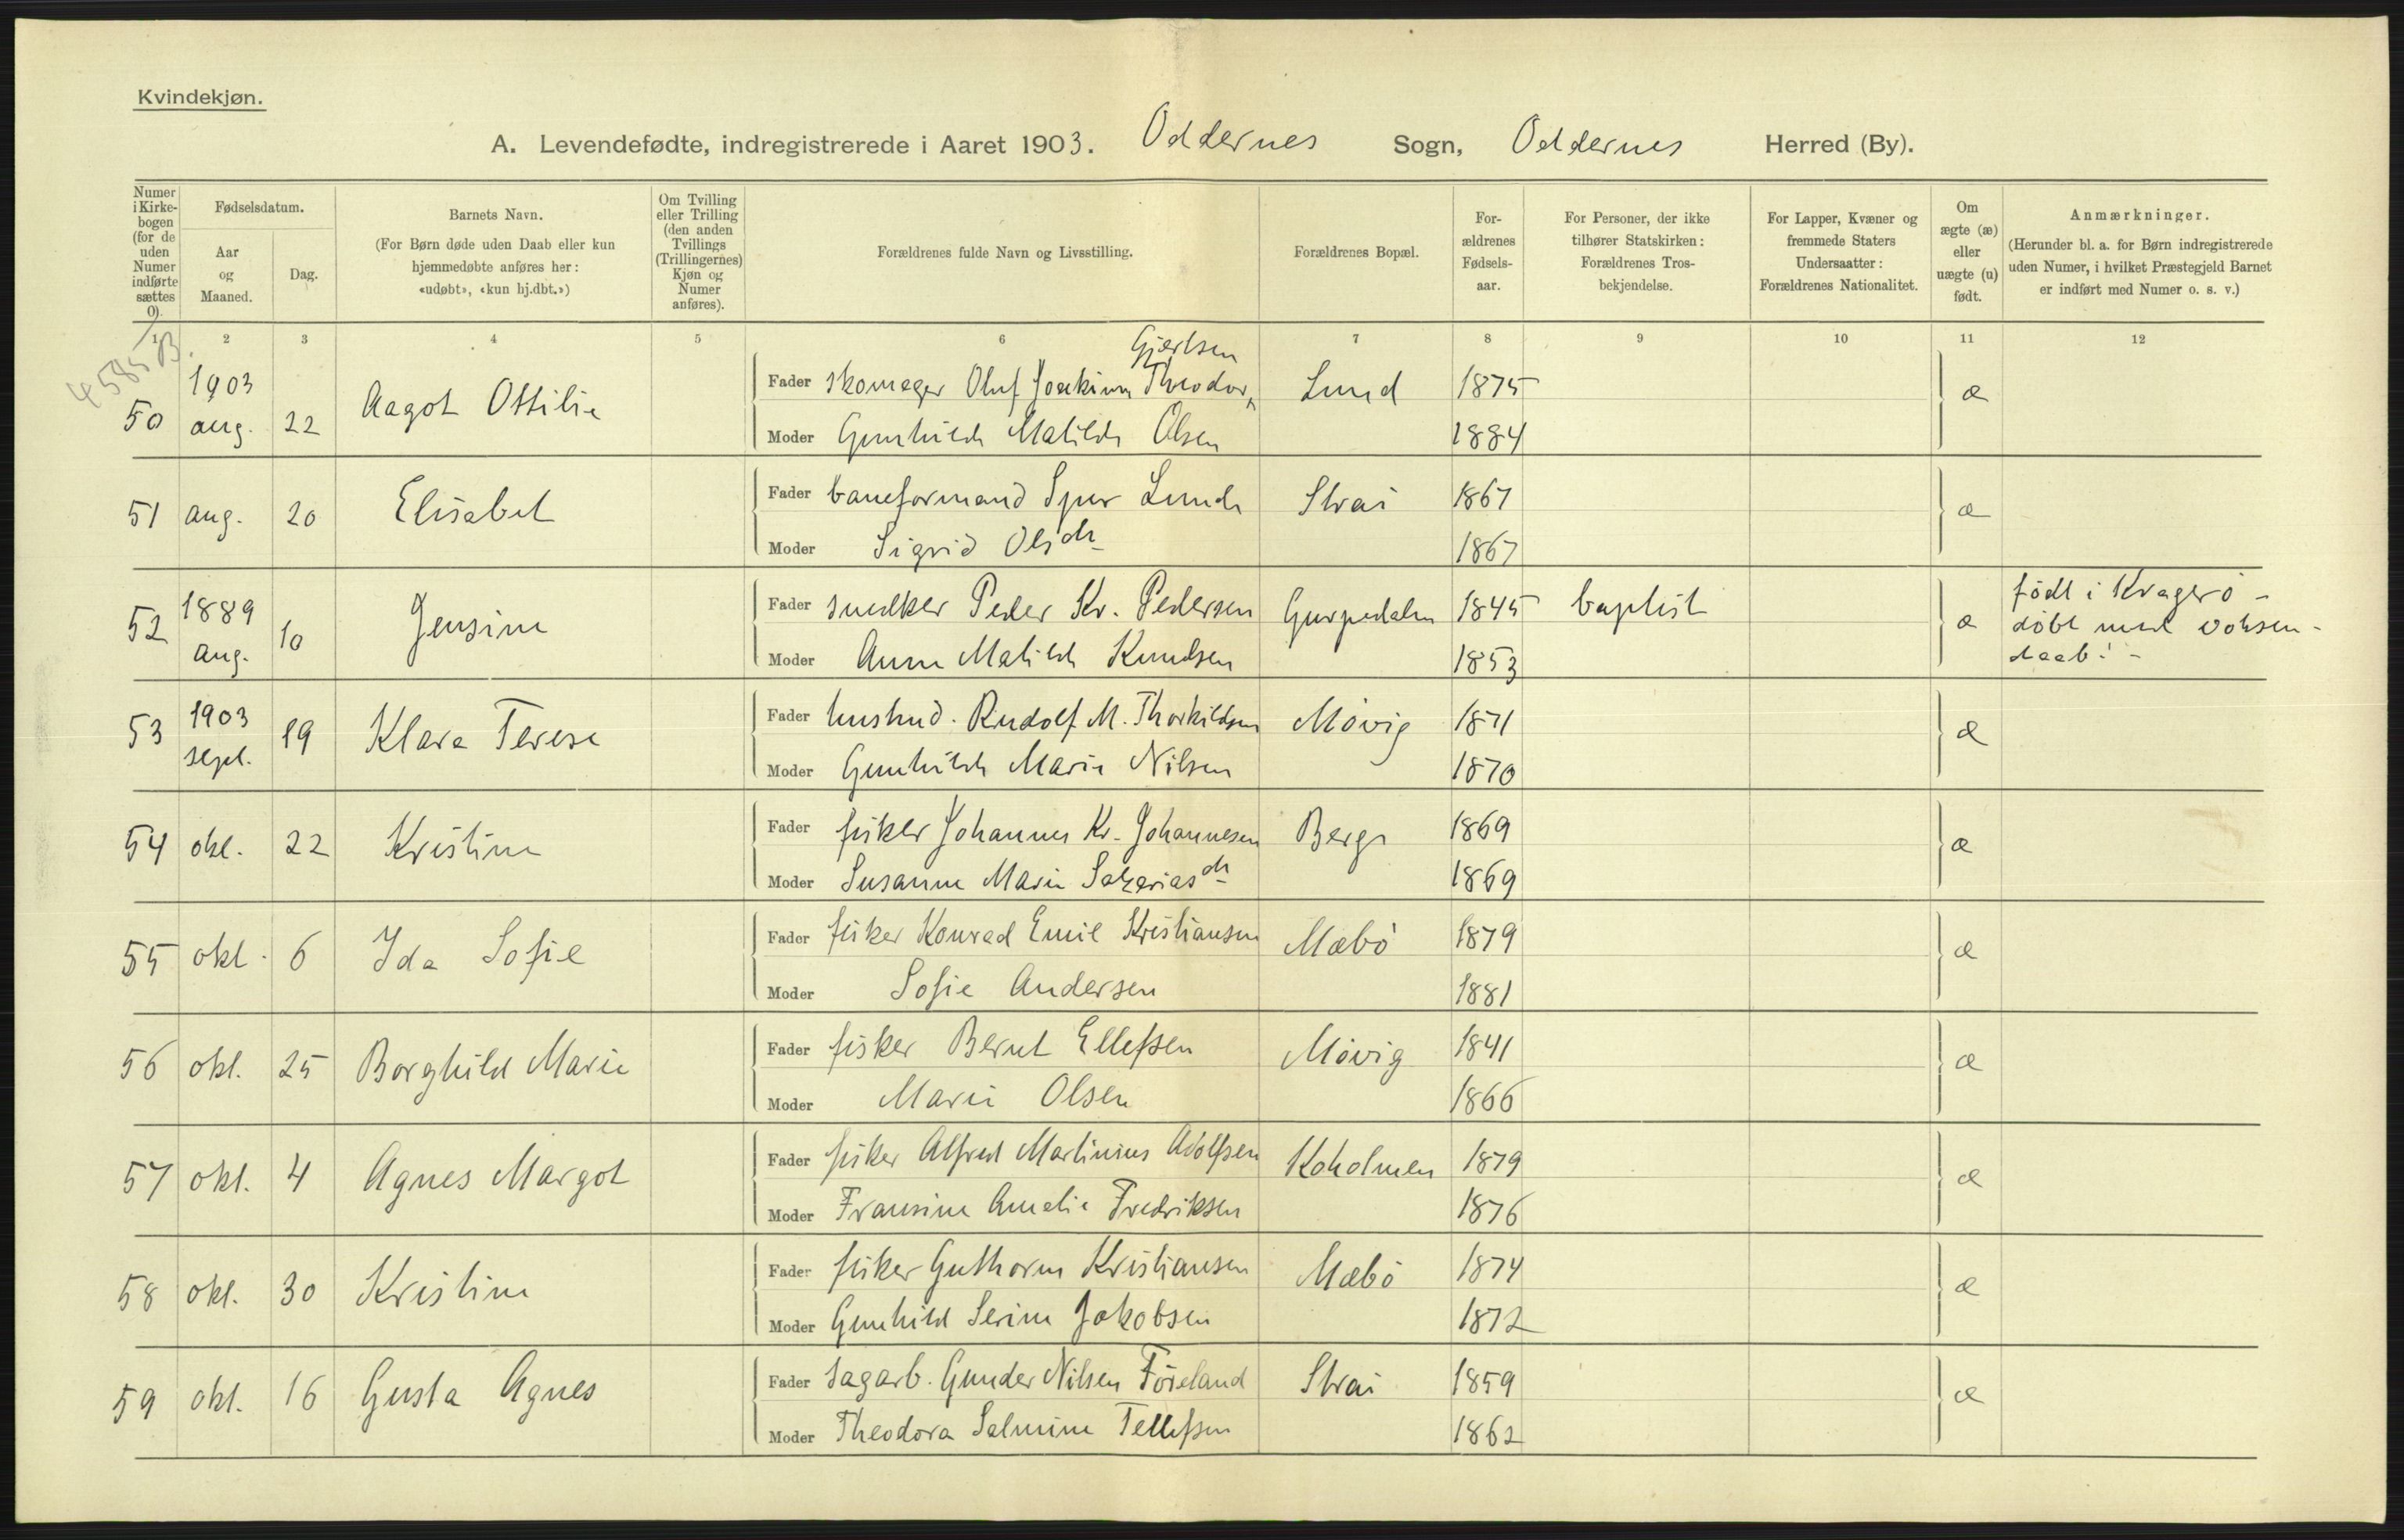 Kvindekjøn.
A. Levendefødte, indregistrerede i Aaret 1903. Oddernes Sogn, Oddernes Herred (By).
Numer i Kirkebogen (for de uden Numer indførte sættes 0).
Fødselsdatum.
Aar og Maaned.
Dag.
Barnets Navn.
(For Børn døde uden Daab eller kun
hjemmedøbte anføres her:
«udøbt», «kun hj.dbt.»)
Om Tvilling
eller Trilling
(den anden
Tvillings
(Trillingernes)
Kjøn og
Numer
anføres).
Forældrenes fulde Navn og Livsstilling.
Forældrenes Bopæl.
For-
ældrenes
Fødsels-
aar.
For Personer, der ikke
tilhører Statskirken:
Forældrenes Tros-
bekjendelse.
For Lapper, Kvæner og
fremmede Staters
Undersaatter:
Forældrenes Nationalitet.
Om
ægte (æ)
eller
uægte (u)
født.
Anmærkninger.
(Herunder bl. a. for Børn indregistrerede
uden Numer, i hvilket Præstegjeld Barnet
er indført med Numer o. s. v.)
1 2 3 4 5 6 7 8 9 10 11 12
4585 B.
Gjertsen
50 1903 aug. 22 Aagot Ottilie Fader skomager Oluf Joakim Theodor Lund 1875 æ
Moder Gunhild Matilde Olsen 1884
51 aug. 20 Elisabet Fader baneformand Spur Lunde Strai 1867 æ
Moder Sigrid Olsdr 1867
52 1889 aug. 10 Jensine Fader snedker Peder Kr. Pedersen 1845 baptist æ født i Kragerö -
døbt med voksen-
daab! -
Moder Anne Matilde Knudsen 1853
53 1903 sept. 19 Klara Terese Fader husmd. Rudolf M. Thorkildsen Mövig 1871 æ
Moder Gunhild Marie Nilsen 1870
54 okt. 22 Kristine Fader fisker Johannes Kr. Johannesen Berge 1869 æ
Moder Susanne Marie Sakariasdr 1869
55 okt. 6 Ida Sofie Fader fisker Konrad Emil Kristiansen Mæbö 1879 æ
Moder Sofie Andersen 1881
56 okt. 25 Borghild Marie Fader fisker Bernt Ellefsen Mövig 1841 æ
Moder Marie Olsen 1866
57 okt. 4 Agnes Margot Fader fisker Alfred Martinius Adolfsen Koholmen 1879 æ
Moder Fransine Amalie Fredriksen 1876
58 okt. 30 Kristine Fader fisker Guthorm Kristiansen Mæbö 1874 æ
Moder Gunhild Serine Jakobsen 1872
59 okt. 16 Gusta Agnes Fader sagarb. Gunder Nilsen Föreland Strai 1859 æ
Moder Theodora Salmine Tellefsen 1862